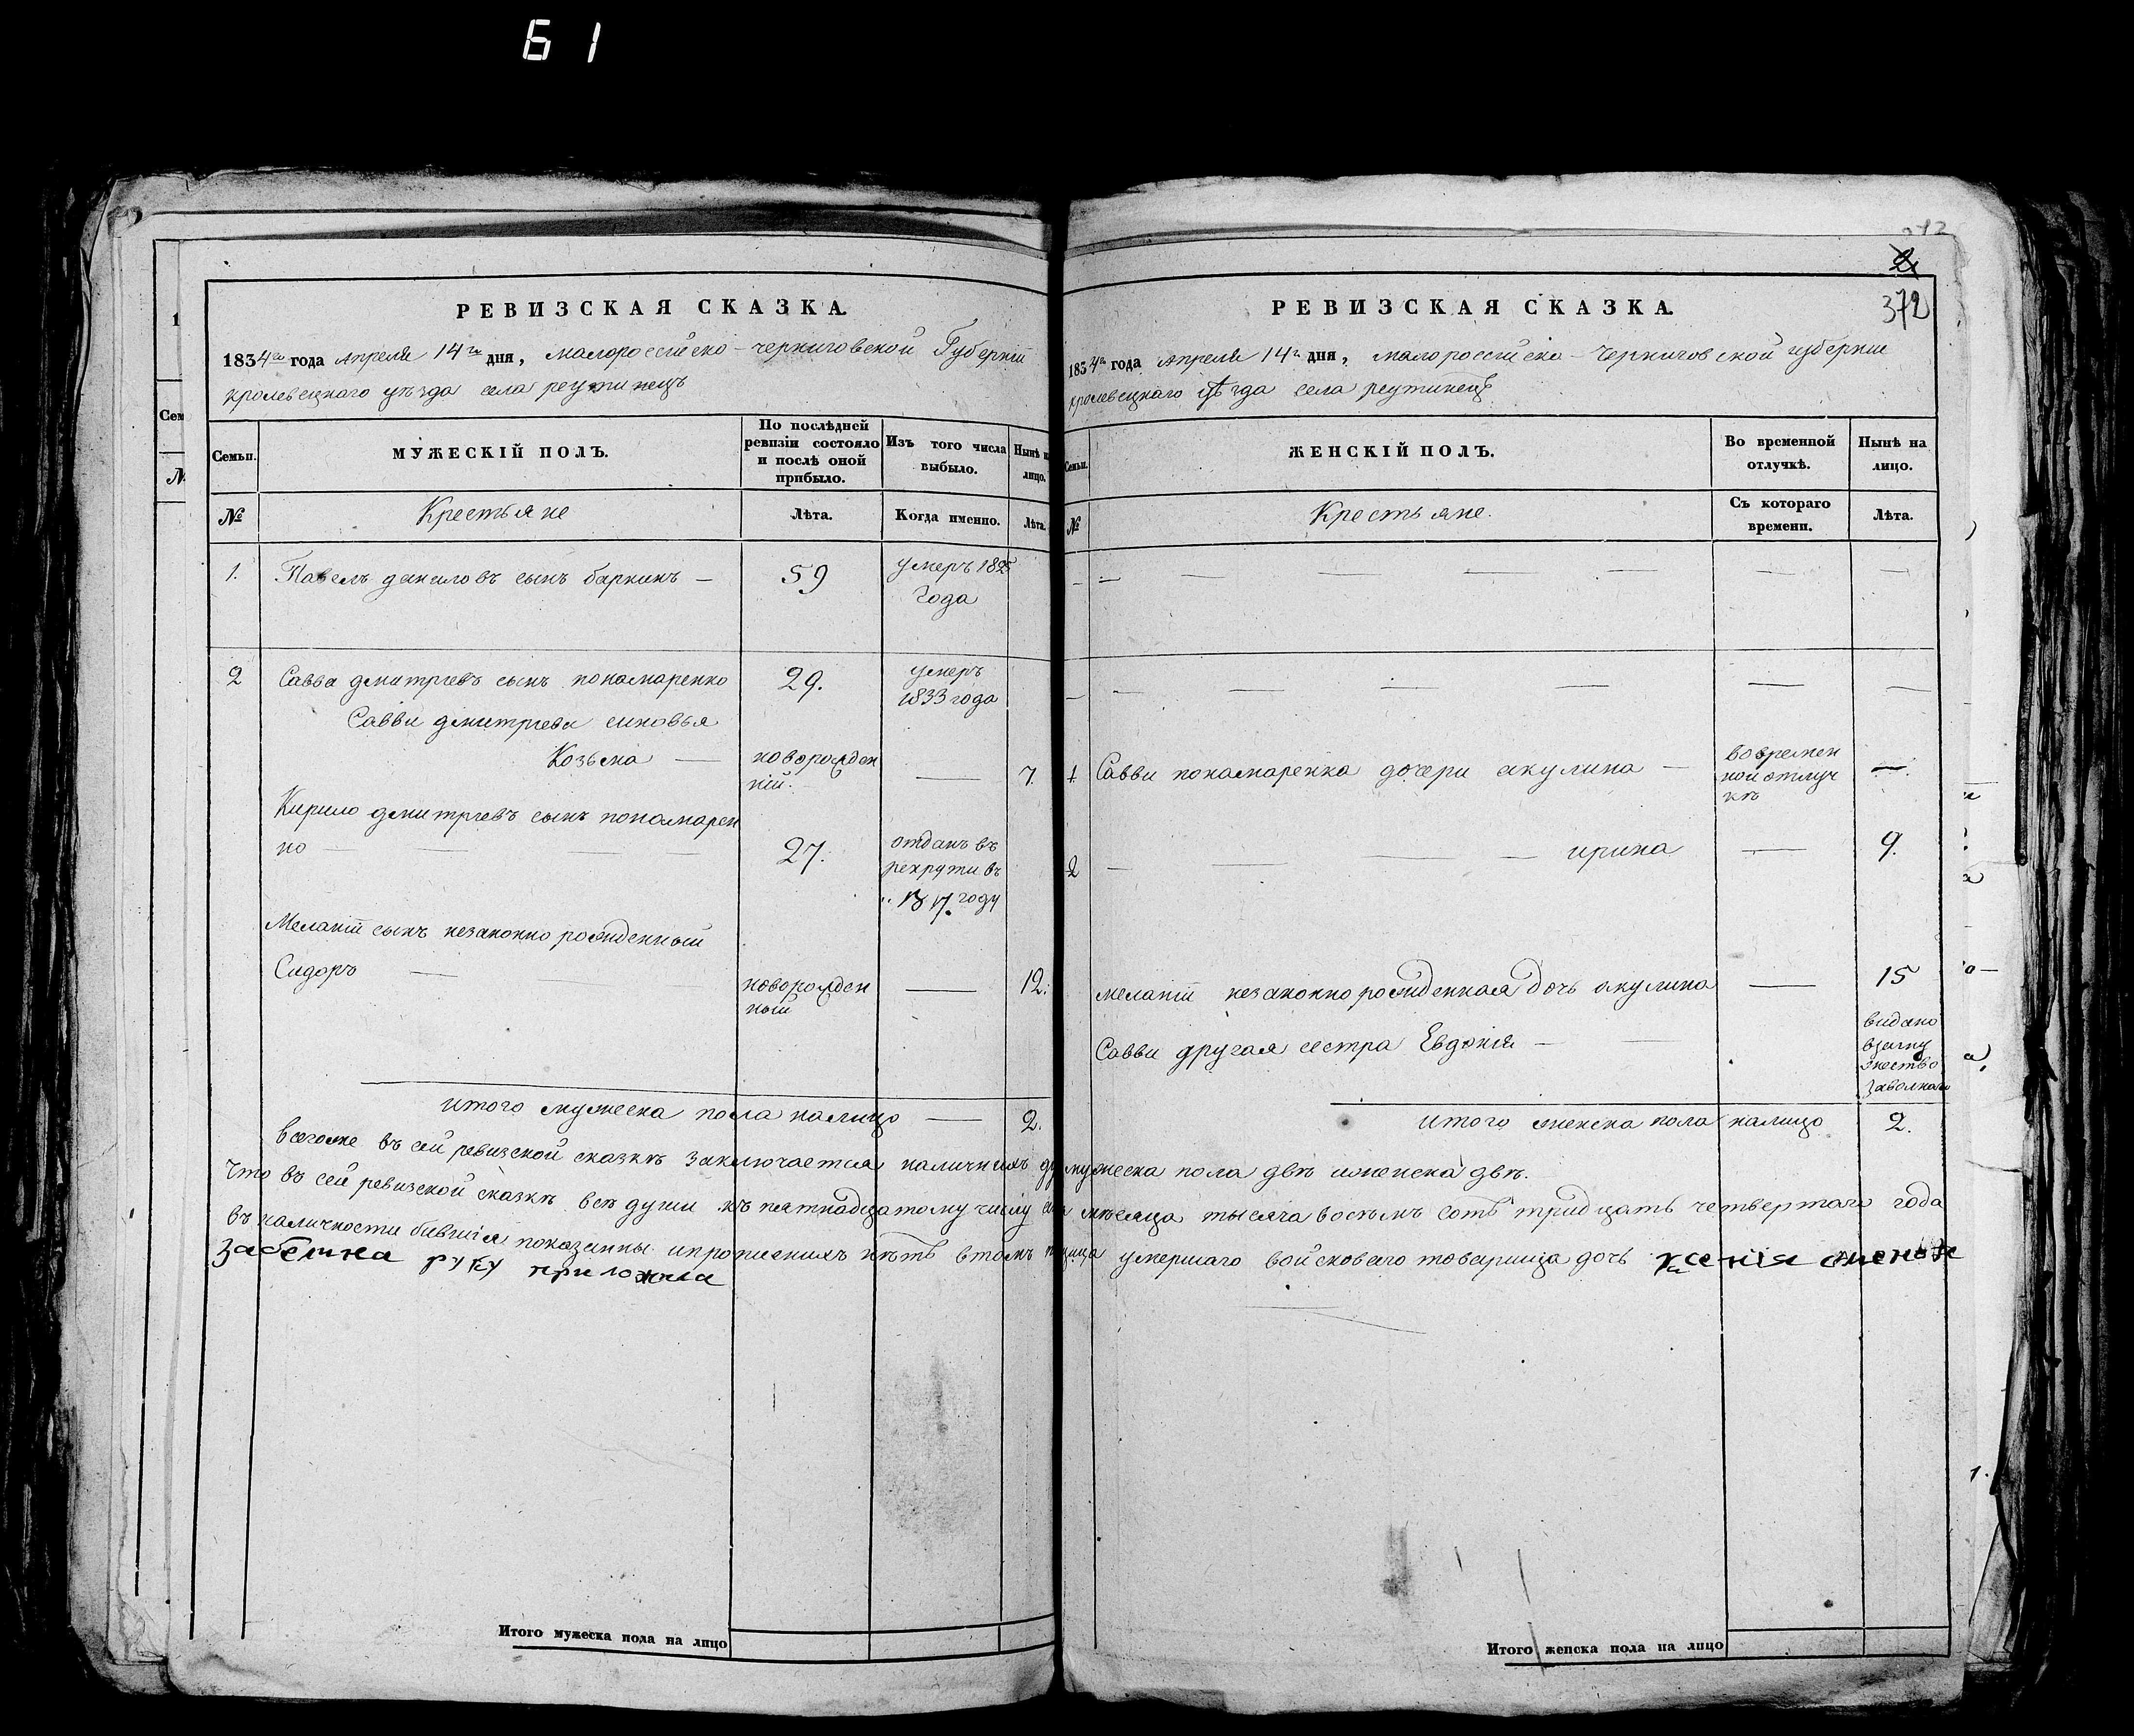 61
372
РЕВИЗСКАЯ СКАЗКА.
1834го года апреля 14го дня, малороссійско-черниговской Губерніи
кролевецкаго уѣзда села реутинецъ
Семьи.
МУЖЕСКІЙ ПОЛЪ.
По послѣдней ревизіи состояло и послѣ оной прибыло.
Изъ того числа выбыло.
Нынѣ на лицо.
№
Крестьяне
Лѣта.
Когда именно.
Лѣта.
1. Павелъ даниловъ сынъ баркинъ — 59 умеръ 1825
года
2 Савва дмитріевъ сынъ пономаренко 29. умеръ
1833 года
Савви дмитріева синовья
Козьма — новорожден
ній. — 7.
Кирило дмитріевъ сынъ пономарен
ко — 27. отданъ въ
рекрути въ
1817 году
Меланіи сынъ незаконно рожденный
Сидоръ — новорожден
ный — 12.
итого мужеска пола налицо — 2.
РЕВИЗСКАЯ СКАЗКА.
1834го года апреля 14го дня, малороссійско-Черниговской губерніи
кролевецкаго уѣзда села реутинецъ
Семьи.
ЖЕНСКІЙ ПОЛЪ.
Во временной отлучкѣ.
Нынѣ на лицо.
№
Крестьяне.
Съ котораго времени.
Лѣта.
1 Савви пономаренка дочери акулина — вовремен
ной отлуч
кѣ —
2 — ирина — 9.
меланіи незаконно рожденная дочь акулина — 15
Савви другая сестра Евдокія — видано
взаму
жество
итого женска пола налицо 2.
всегоже въ сей ревизской сказкѣ заключается наличнихъ мужеска пола двѣ иженска двѣ.
Что въ сей ревизской сказкѣ всѣ души къ пятнадцатому числу сего мѣсяца тысяча восемъ сотъ тридцать четвертаго года
въ наличности бившія показанны ипрописнихъ нѣтъ втомъ умершаго войсковаго товарища дочь ксенія
руку приложила
Итого мужеска пола на лицо
Итого женска пола на лицо